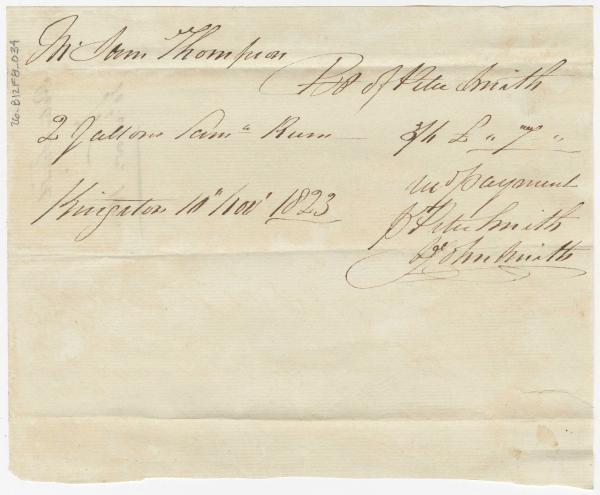 Mr Sam Thompson
Bot of Peter Smith
2 Gallons Jama Rum 3/6 £ " 7 "
Kingston 10th Novr 1823
Recd payment
pr Peter Smith
John Smith
26-B12F8-034